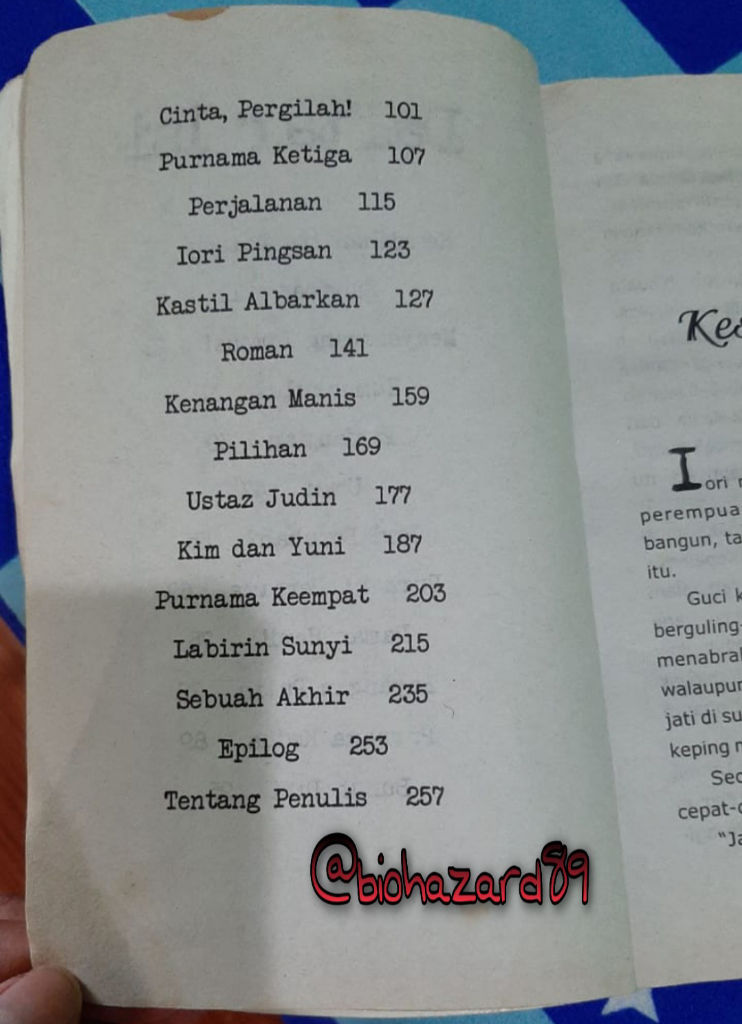 Cinta, Pergilah! 101
Purnama Ketiga 107
Perjalanan 115
Iori Pingsan 123
Kastil Albarkan 127
Roman 141
Kenangan Manis 159
Pilihan 169
Ustaz Judin 177
Kim dan Yuni 187
Purnama Keempat 203
Labirin Sunyi 215
Sebuah Akhir 235
Epilog 253
Tentang Penulis 257
@biohazard89
Iori
perempua
bangun, ta
itu.
Guci k
berguling-
menabrak
walaupun
jati di su
keping m
Sec
cepat-c
"Ja